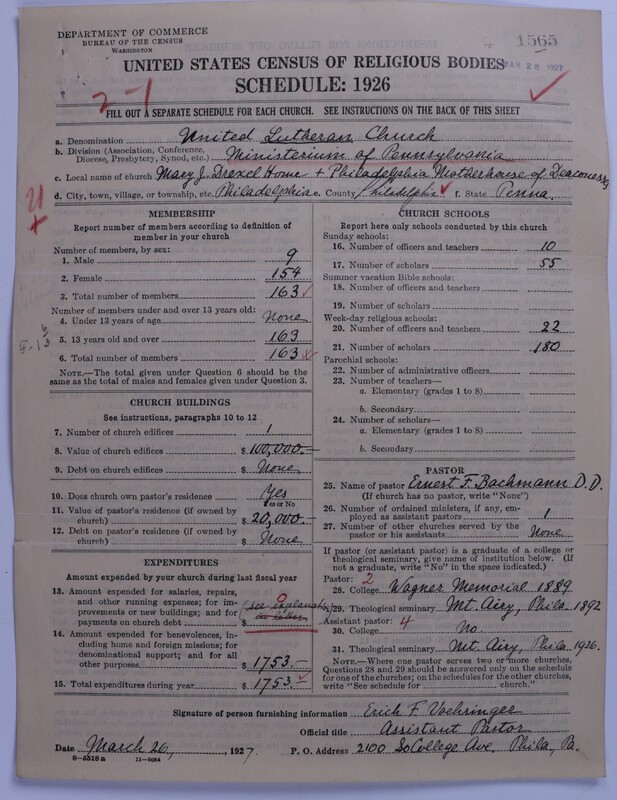 DEPARTMENT OF COMMERCE
BUREAU OF THE CENSUS
WASHINGTON
1565
MAR 28 1927
UNITED STATES CENSUS OF RELIGIOUS BODIES
SCHEDULE: 1926
2-1
FILL OUT A SEPARATE SCHEDULE FOR EACH CHURCH. SEE INSTRUCTIONS ON THE BACK OF THIS SHEET
a. Denomination United Lutheran Church
b. Division (Association, Conference, Diocese, Presbytery, Synod, etc.) Ministerium of Pennsylvania
c. Local name of church Mary J. Drexel Home + Philadelphia Motherhouse of Deaconesses
d. City, town, village, or township, etc. Philadelphia e. County Philadelphia f. State Penna.
MEMBERSHIP
Report number of members according to definition of member in your church
Number of members, by sex:
1. Male 9
2. Female 154
3. Total number of members 163
Number of members under and over 13 years old:
4. Under 13 years of age None
5. 13 years old and over 163
6. Total number of members 163
NOTE.—The total given under Question 6 should be the same as the total of males and females given under Question 3.
CHURCH BUILDINGS
See instructions, paragraphs 10 to 12
7. Number of church edifices 1
8. Value of church edifices $ 100,000.—
9. Debt on church edifices $ None
10. Does church own pastor's residence Yes
Yes or No
11. Value of pastor's residence (if owned by church) $ 20,000.—
12. Debt on pastor's residence (if owned by church) $ None
EXPENDITURES
Amount expended by your church during last fiscal year
13. Amount expended for salaries, repairs, and other running expenses; for improvements or new buildings; and for payments on church debt $ 0
14. Amount expended for benevolences, including home and foreign missions; for denominational support; and for all other purposes $ 1753.—
15. Total expenditures during year $ 1753.—
CHURCH SCHOOLS
Report here only schools conducted by this church
Sunday schools:
16. Number of officers and teachers 10
17. Number of scholars 55
Summer vacation Bible schools:
18. Number of officers and teachers
19. Number of scholars
Week-day religious schools:
20. Number of officers and teachers 22
21. Number of scholars 180
Parochial schools:
22. Number of administrative officers
23. Number of teachers—
a. Elementary (grades 1 to 8)
b. Secondary
24. Number of scholars—
a. Elementary (grades 1 to 8)
b. Secondary
PASTOR
25. Name of pastor Ernest F. Bachmann D.D.
(If church has no pastor, write "None")
26. Number of ordained ministers, if any, employed as assistant pastors 1
27. Number of other churches served by the pastor or his assistants None
If pastor (or assistant pastor) is a graduate of a college or theological seminary, give name of institution below. (If not a graduate, write "No" in the space indicated.)
Pastor: 2
28. College Wagner Memorial 1889
29. Theological seminary Mt. Airy, Phila. 1892
Assistant pastor: 4
30. College No
31. Theological seminary Mt. Airy, Phila. 1926.
NOTE.—Where one pastor serves two or more churches, Questions 28 and 29 should be answered only on the schedule for one of the churches; on the schedules for the other churches, write "See schedule for church."
Signature of person furnishing information Erich F. Voehringer
Official title Assistant Pastor
Date March 26, 1927. P. O. Address 2100 So College Ave. Phila, Pa.
6—5518a 11—9054